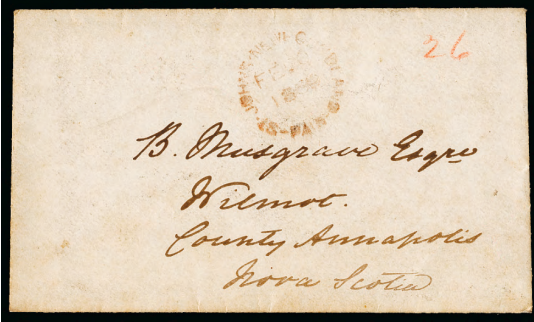 26
ST. JOHN'S NEWFOUNDLAND
PAID
B. Musgrave Esqre
Wilmot.
County Annapolis
Nova Scotia